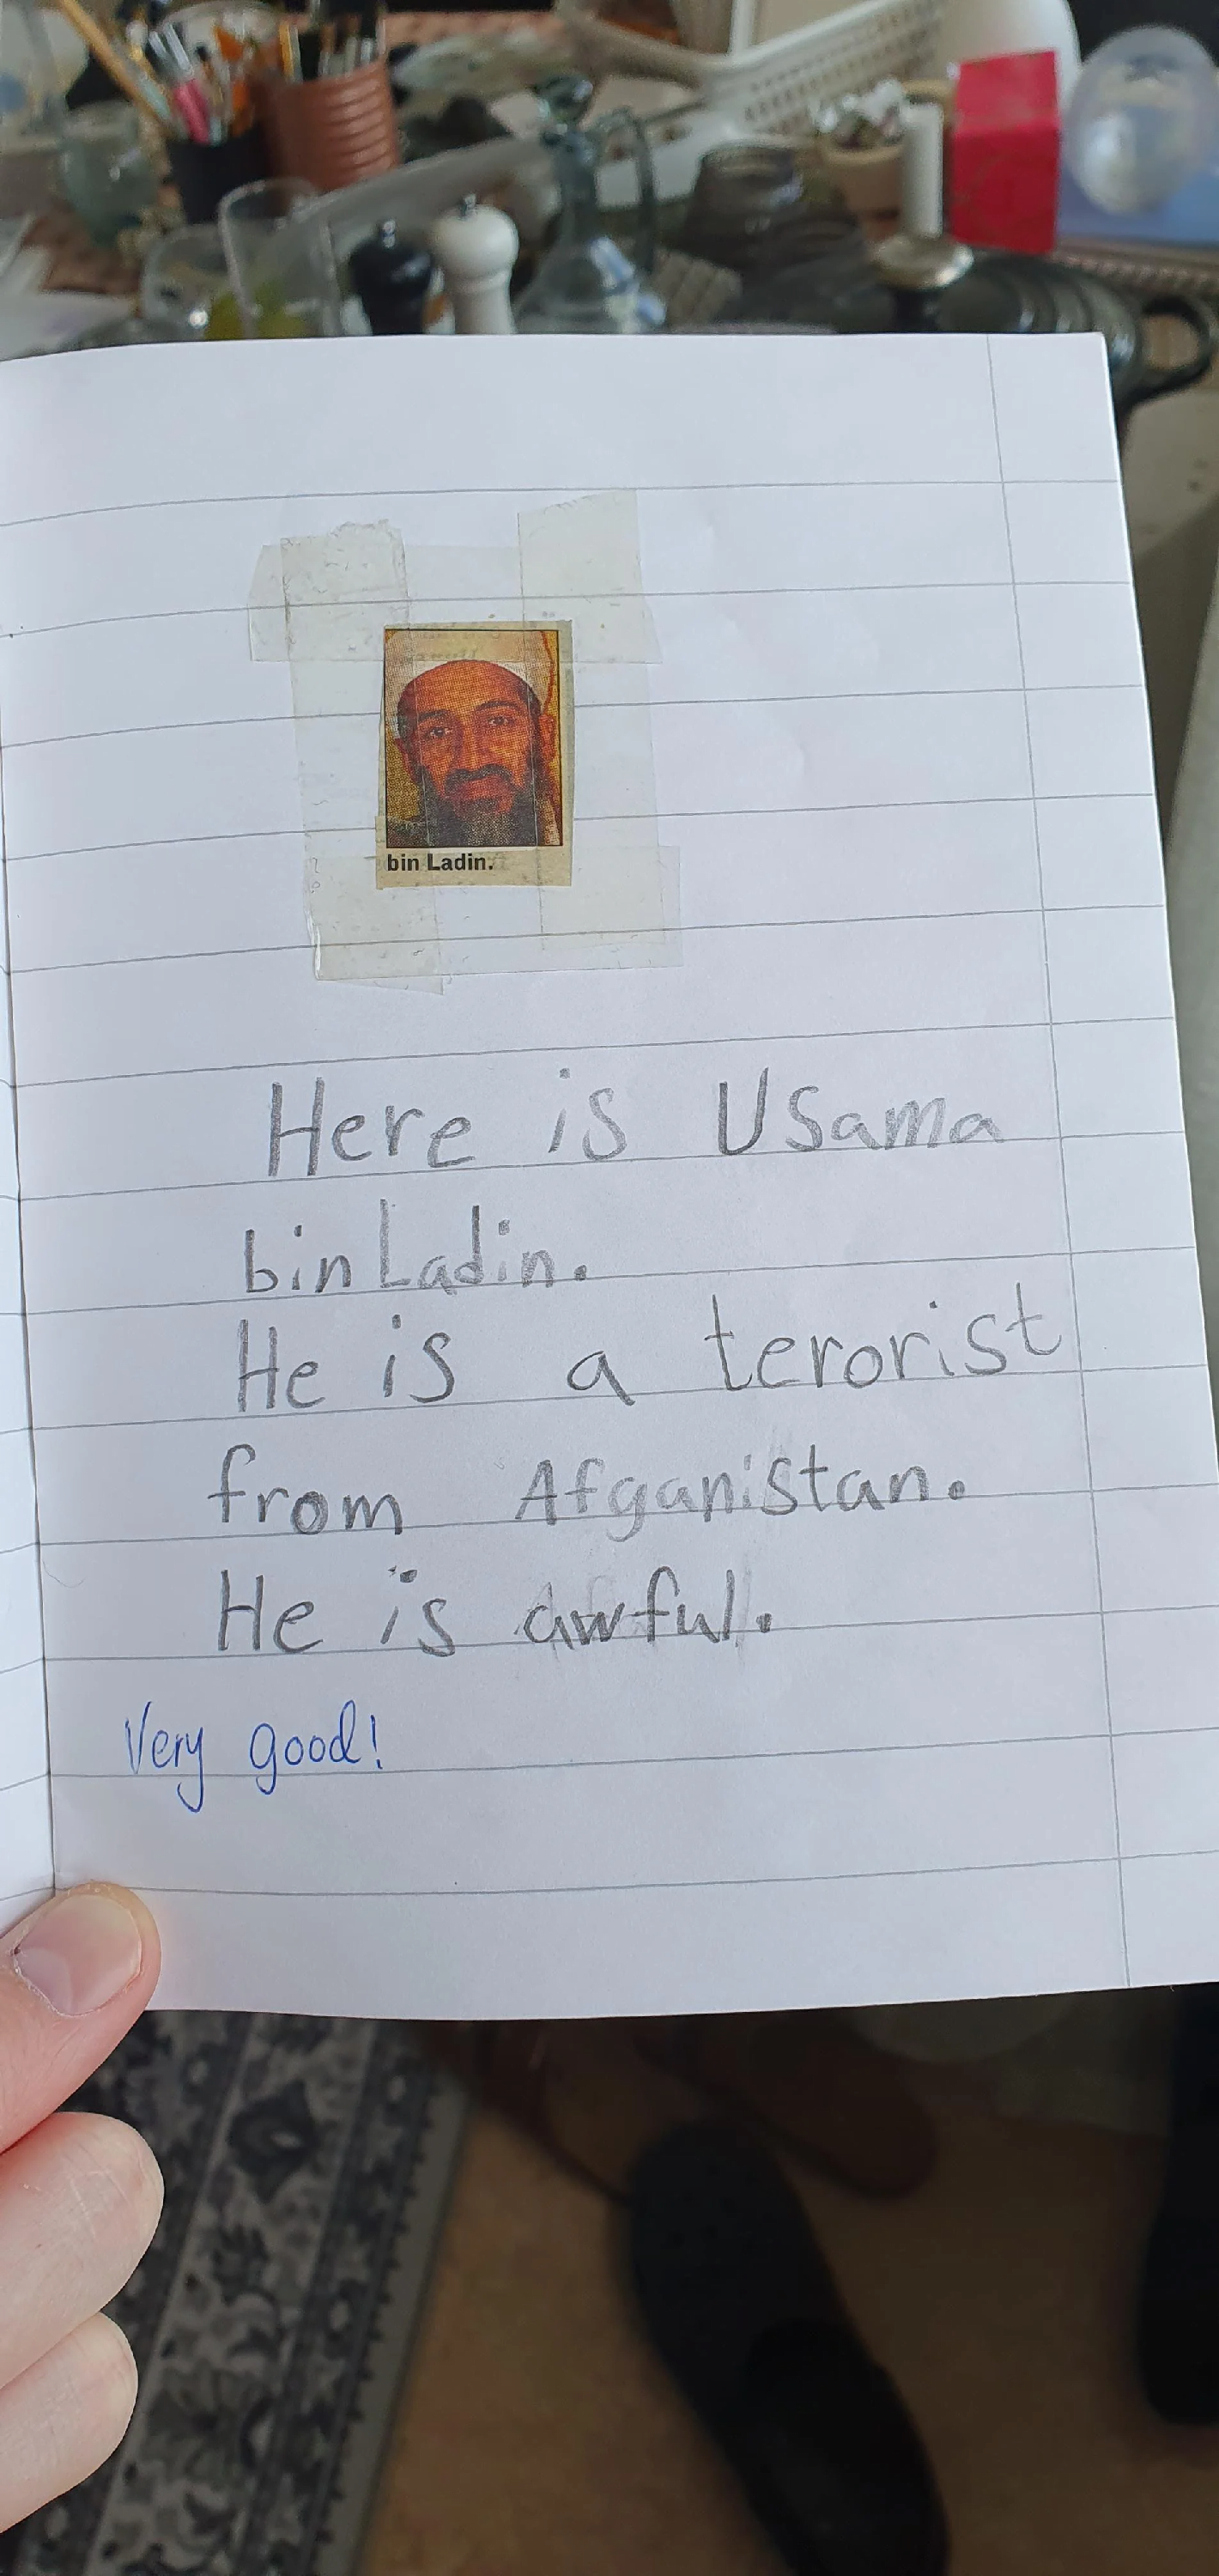 bin Ladin.
Here is Usama
bin Ladin.
He is a terorist
from Afganistan.
He is awful.
Very good!